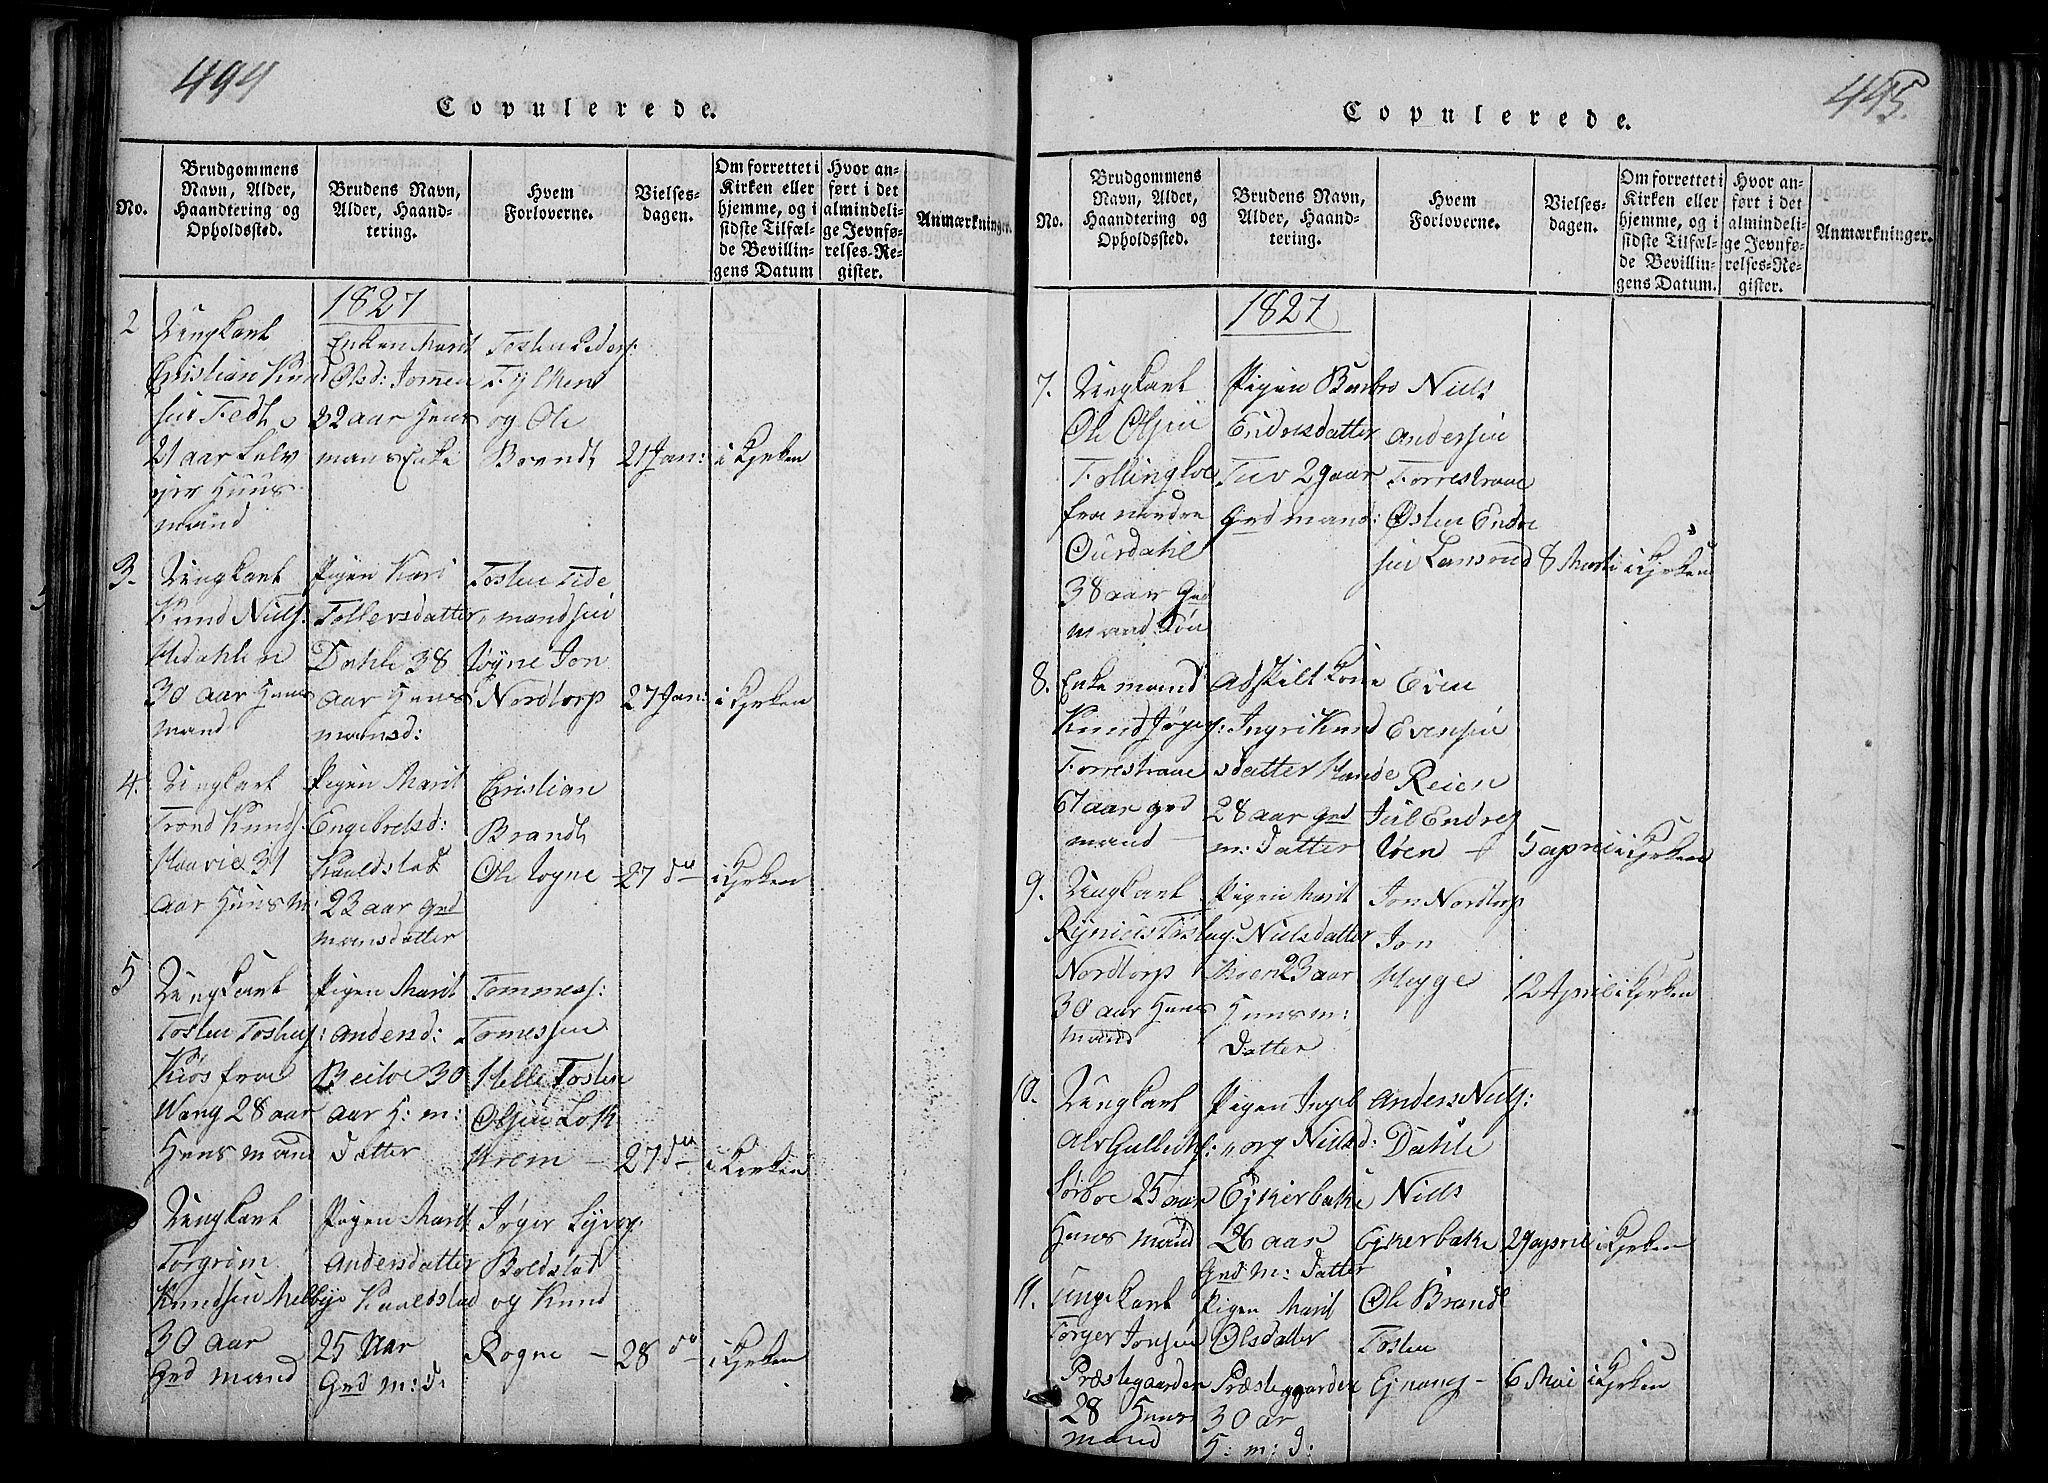 494
Copulerede.
No.
Brudgommens
Navn, Alder,
Haandtering og
Opholdssted.
Brudens Navn,
Alder, Haand-
tering.
Hvem
Forloverne.
Vielses-
dagen.
Om forrettet i
Kirken eller
hjemme, og i
sidste Tilfæl-
de Bevillin-
gens Datum
Hvor an-
ført i det
almindeli-
ge Jevnfø-
relses-Re-
gister.
Anmærkninger.
1827
2
Ungkarl
Christian Knud
sen Fedt
21 aar Selv
Huus
mand
Enken Marit
Olsd:
32 aar Huus
mans Enke
Tosten Peders:
og Ole
Brandt
21 Jan:
i Kjrken
3.
Ungkarl
Knud Niels:
Hedahlen
30 aar Huus
mand
Pigen Kari
Tollevsdatter
Dahle 38
aar Huus
mansd:
Tosten Tide
mandsen
Wigne Jon
Nordtorp
27 Jan:
i Kjrken
4.
Ungkarl
Trond Knuds:
Haavie 31
aar Huusm:
Pigen Marit
Engebretsd:
Kaaldstad
23 aar Grd
mansdatter
Christian
Brandt
Ole Wogne
27 do
i Kjrken
5
Ungkarl
Tosten Tostens:
Kios fra
Wang 28 aar
Huus mand
Pigen Marit
Andersd:
Beito 30
aar H: m:
Datter
Tommess:
Tomessen
Helle Tosten
Olsen Lok
Krem
27 de
i Kirken
Ungkarl
Torgrim
Knudsen Melbye
30 aar
Grd mand
Pigen Marit
Andersdatter
Kaaldstad
25 Aar
Grd m: d:
Jøger Syvers:
Boldstad
og Knud
Rogne
28 do
i Kjrken
495.
Copulerede.
No.
Brudgommens
Navn, Alder,
Haandtering og
Opholdssted.
Brudens Navn,
Alder, Haand-
tering.
Hvem
Forloverne.
Vielses-
dagen.
Om forrettet i
Kirken eller
hjemme, og i
sidste Tilfæl-
de Bevillin-
gens Datum.
Hvor an-
ført i det
almindeli-
ge Jevnfø-
relses-Re-
gister.
Anmærkninger.
1827
7.
Ungkarl
Ole Olsen
Follingloe
fra nordre
Ourdahl
38 aar Grd
mand Søn
Pigen Barbro
Endresdatter
Tuv 29 aar
Grd mand:
Niels
Andersen
Forrestrave
Østen Endre
sen Lansrud
8 Marti
i Kjrken
8.
Enkemand
Knud Jøgers:
Forrestraae
67 aar grd
mand
Adskilt Kone
Ingri Knud
sdatter Hande
28 aar Grd
m: Datter
Even
Evensen
Reien
Juel Endres
Uen
5 april
i Kjrken
9.
Ungkarl
Rynius Tostens:
Nordtorp
30 aar Huus
mand
Pigen Marit
Nielsdatter
Hoen 23 aar
Huusm:
Datter
Jon Nordtorp
Jon
Hegge
12 April
i Kjrken
10.
Ungkarl
Alv Gulliks:
Sørboe 25 aar
Huus mand
Pigen Ingeb
org Nielsd:
Ejkerbake
26 aar
Grd m: Datter
Anders Niels:
Dahle
Niels
Ejkerbake
29 april
i Kjrken
11.
Ungekarl
Torger Jonsen
Præstegaarden
28 Huus
mand
Pigen Marit
Olsdatter
Præstegaarden
30 ar
H: m: d:
Ole Brandt
Tosten
Ejnang
6 Mai
i Kjrken